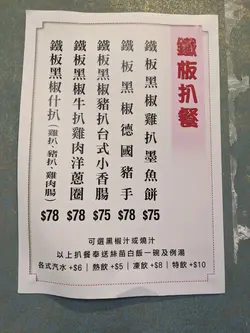 鐵板扒餐
鐵板黑椒雞扒墨魚餅 $75
鐵板黑椒德國豬手 $78
鐵板黑椒豬扒台式小香腸 $75
鐵板黑椒牛扒雞肉洋蔥圈 $78
鐵板黑椒什扒(雞扒、豬扒、雞肉腸) $78
可選黑椒汁或燒汁
以上扒餐奉送絲苗白飯一碗及例湯
各式汽水 +$6 | 熱飲 +$5 | 凍飲 +$8 | 特飲 +$10